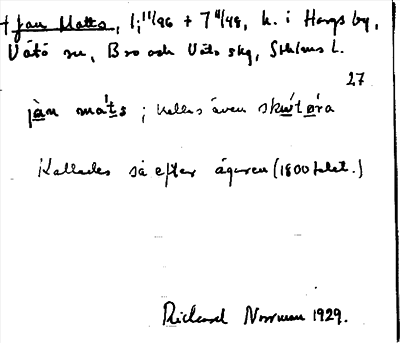 + Jan Matts, 1, 11/96 + 7 4/48, h. i Hargs by,
Vätö sn, Bro och Vätö skg, Sthlms l.
27
jàn mats ; kallas även skutøra
Kallades så efter ägaren (1800 talet.)
Rickard Norrman 1929.